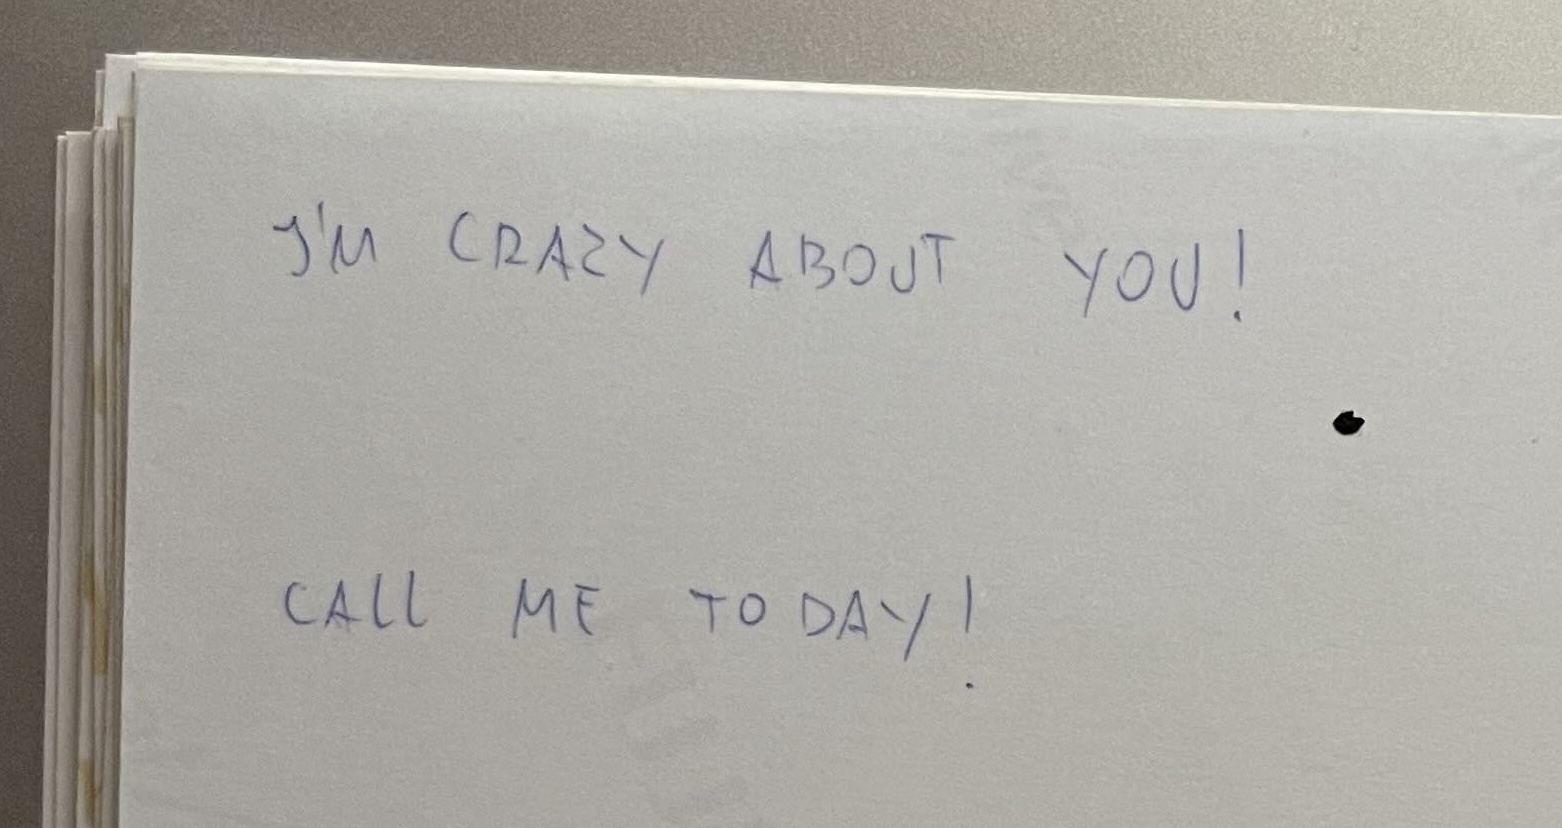 I'M CRAZY ABOUT YOU!
CALL ME TODAY!